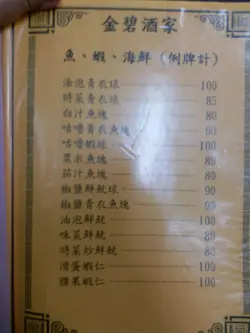 金碧酒家
魚、蝦、海鮮（例牌計）
油泡青衣球 100
時菜青衣球 85
白汁魚塊 80
咕嚕青衣魚塊 90
咕嚕蝦球 100
粟米魚塊 80
茄汁魚塊 80
椒鹽鮮魷球 90
椒鹽青衣魚塊 90
油泡鮮魷 100
味菜鮮魷 80
時菜炒鮮魷 80
滑蛋蝦仁 100
腰果蝦仁 100